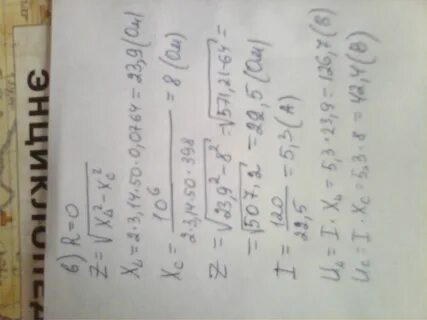 ЭНЦИКЛОПЕД
в) R=0
Z=√(X_L²-X_C²)
X_L=2·3,14·50·0,0764=23,9(Ом)
X_C=10⁶/(2·3,14·50·398)=8(Ом)
Z=√(23,9²-8²)=√(571,21-64)=
=√507,2=22,5(Ом)
I=120/22,5=5,3(А)
U_L=I·X_L=5,3·23,9=126,7(В)
U_C=I·X_C=5,3·8=42,4(В)